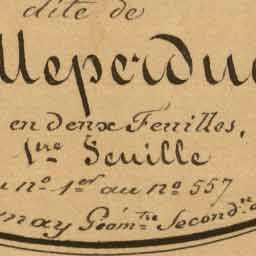 dite de
lleperdue
en deux Feuilles,
1.re Feuille
nº 1.er au nº 557
nay Géom.tre Second.re